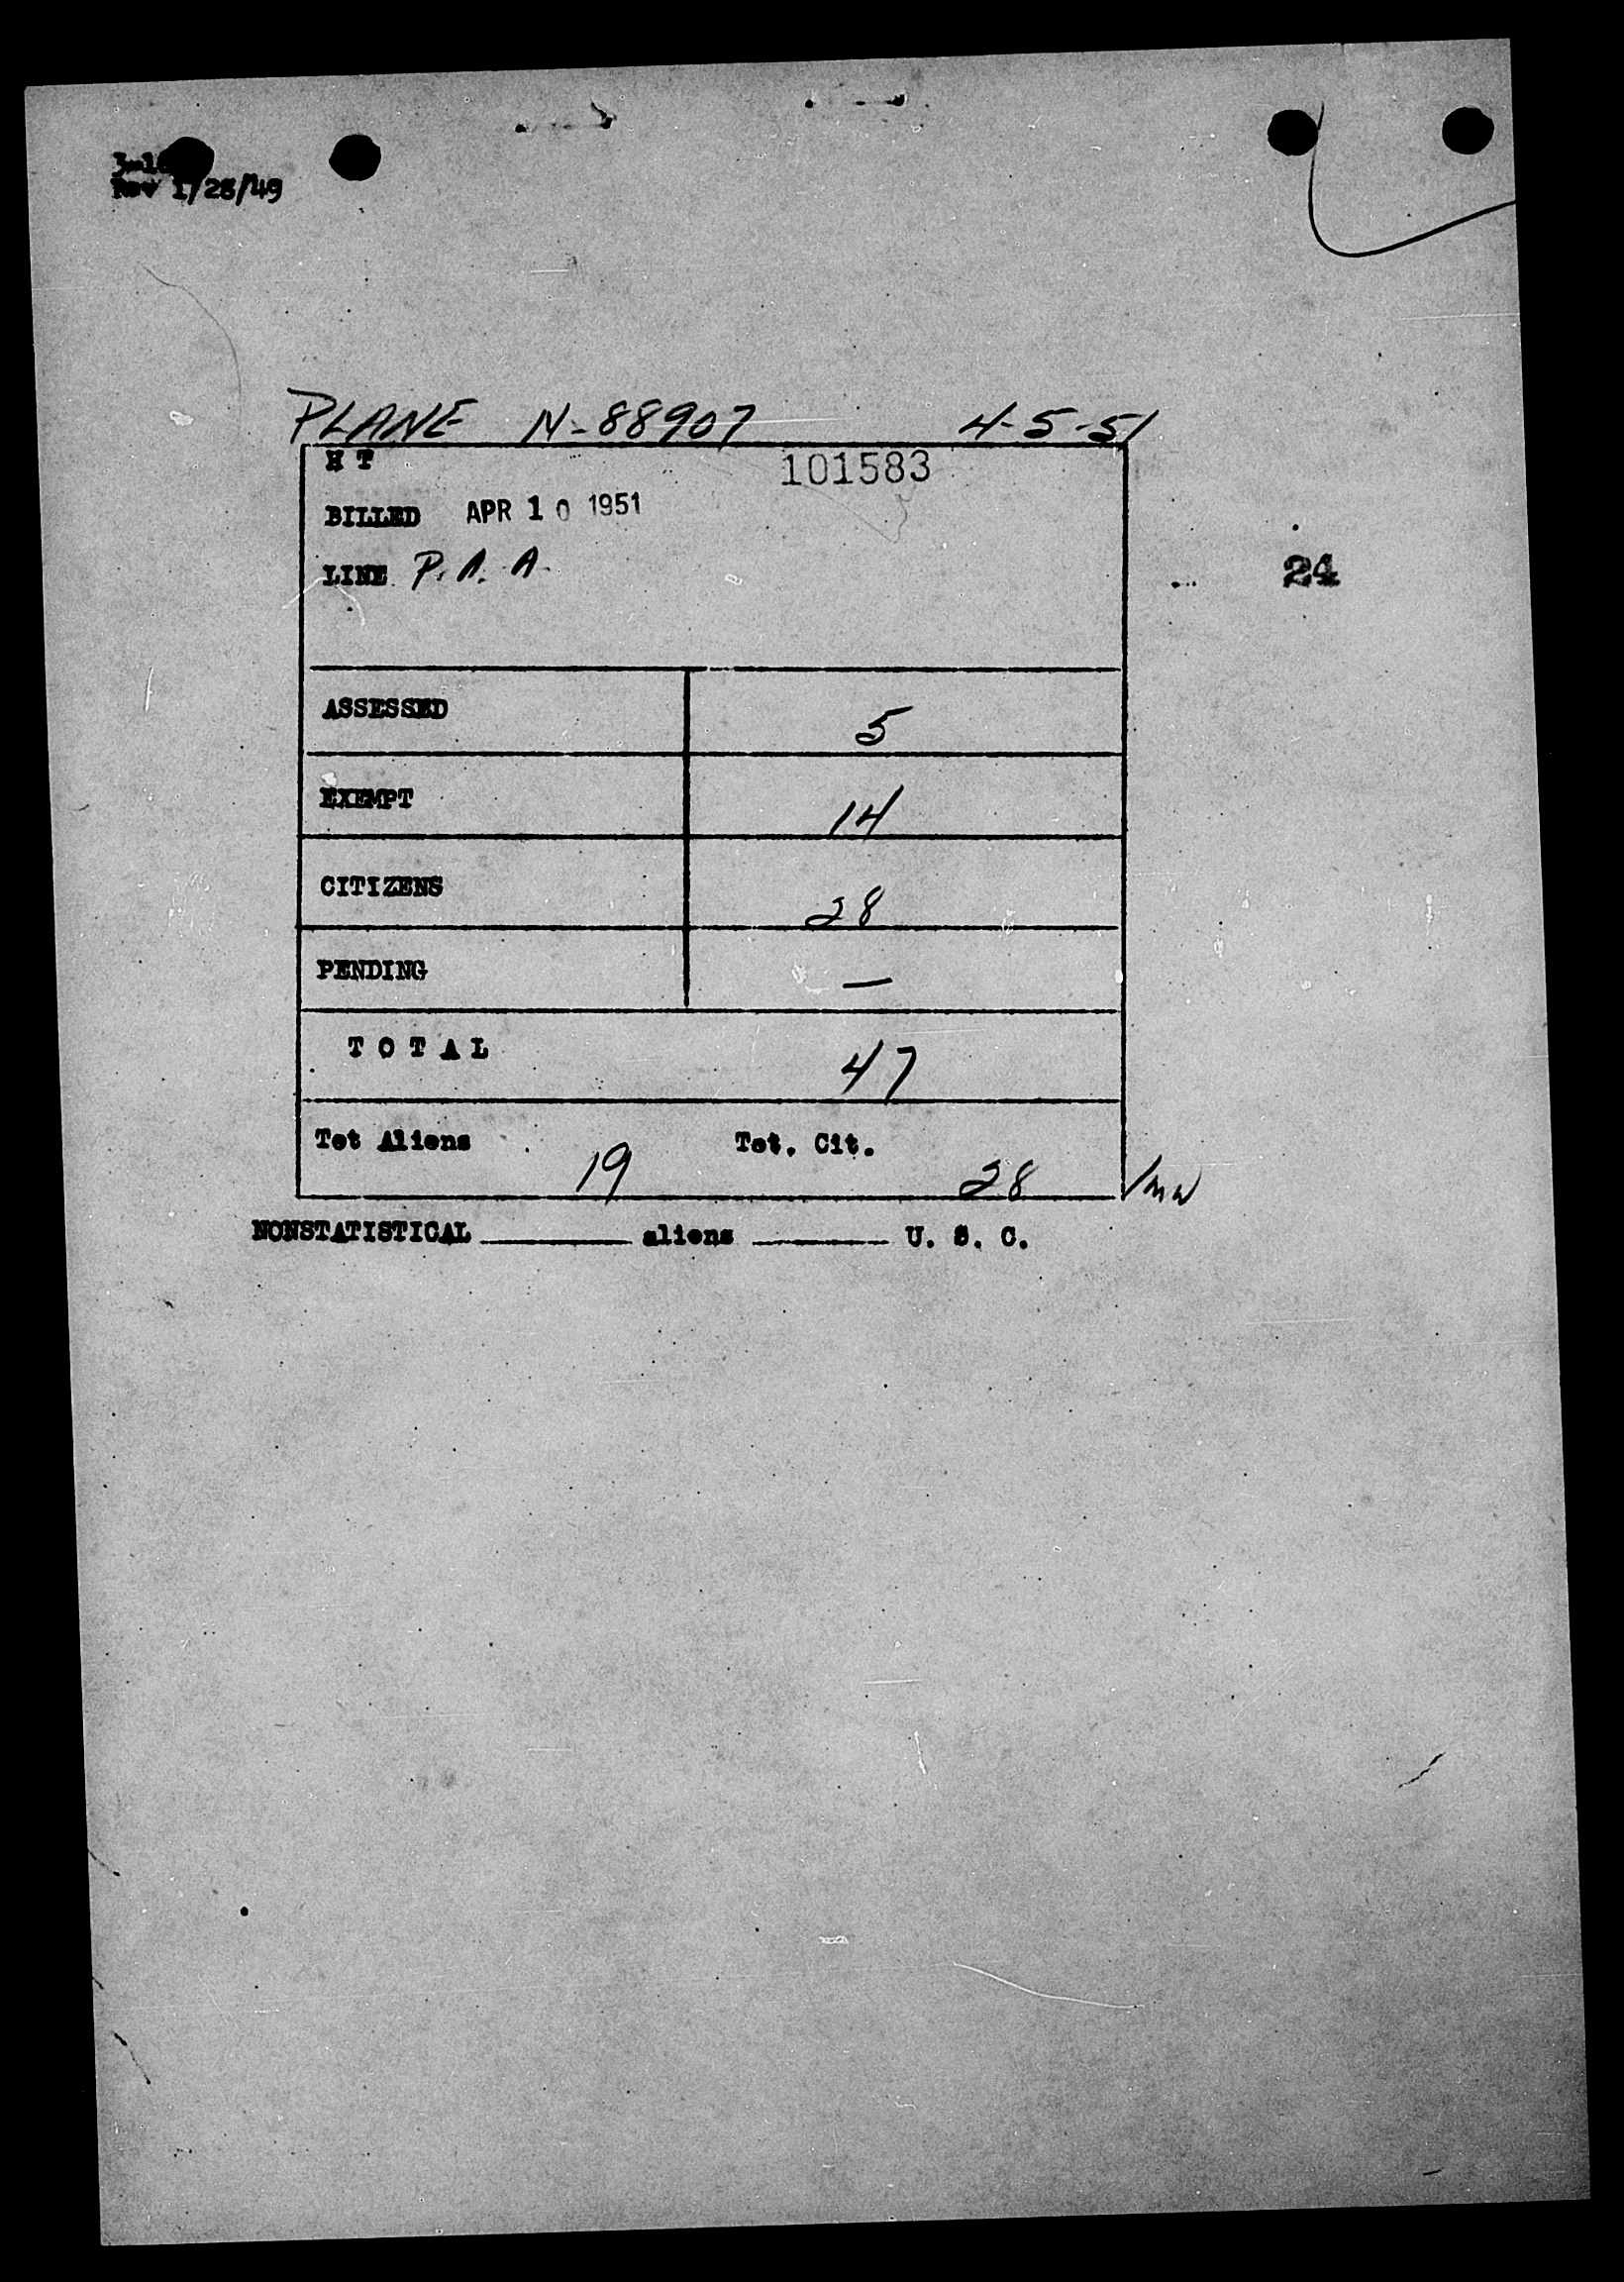 Rev 1/28/49
PLANE N-88907 4-5-51
H T 101583
BILLED APR 10 1951
LINE P.A.A.
24
ASSESSED 5
EXEMPT 14
CITIZENS 28
PENDING —
TOTAL 47
Tot Aliens 19 Tot. Cit. 28
NONSTATISTICAL ______ aliens ______ U. S. C.